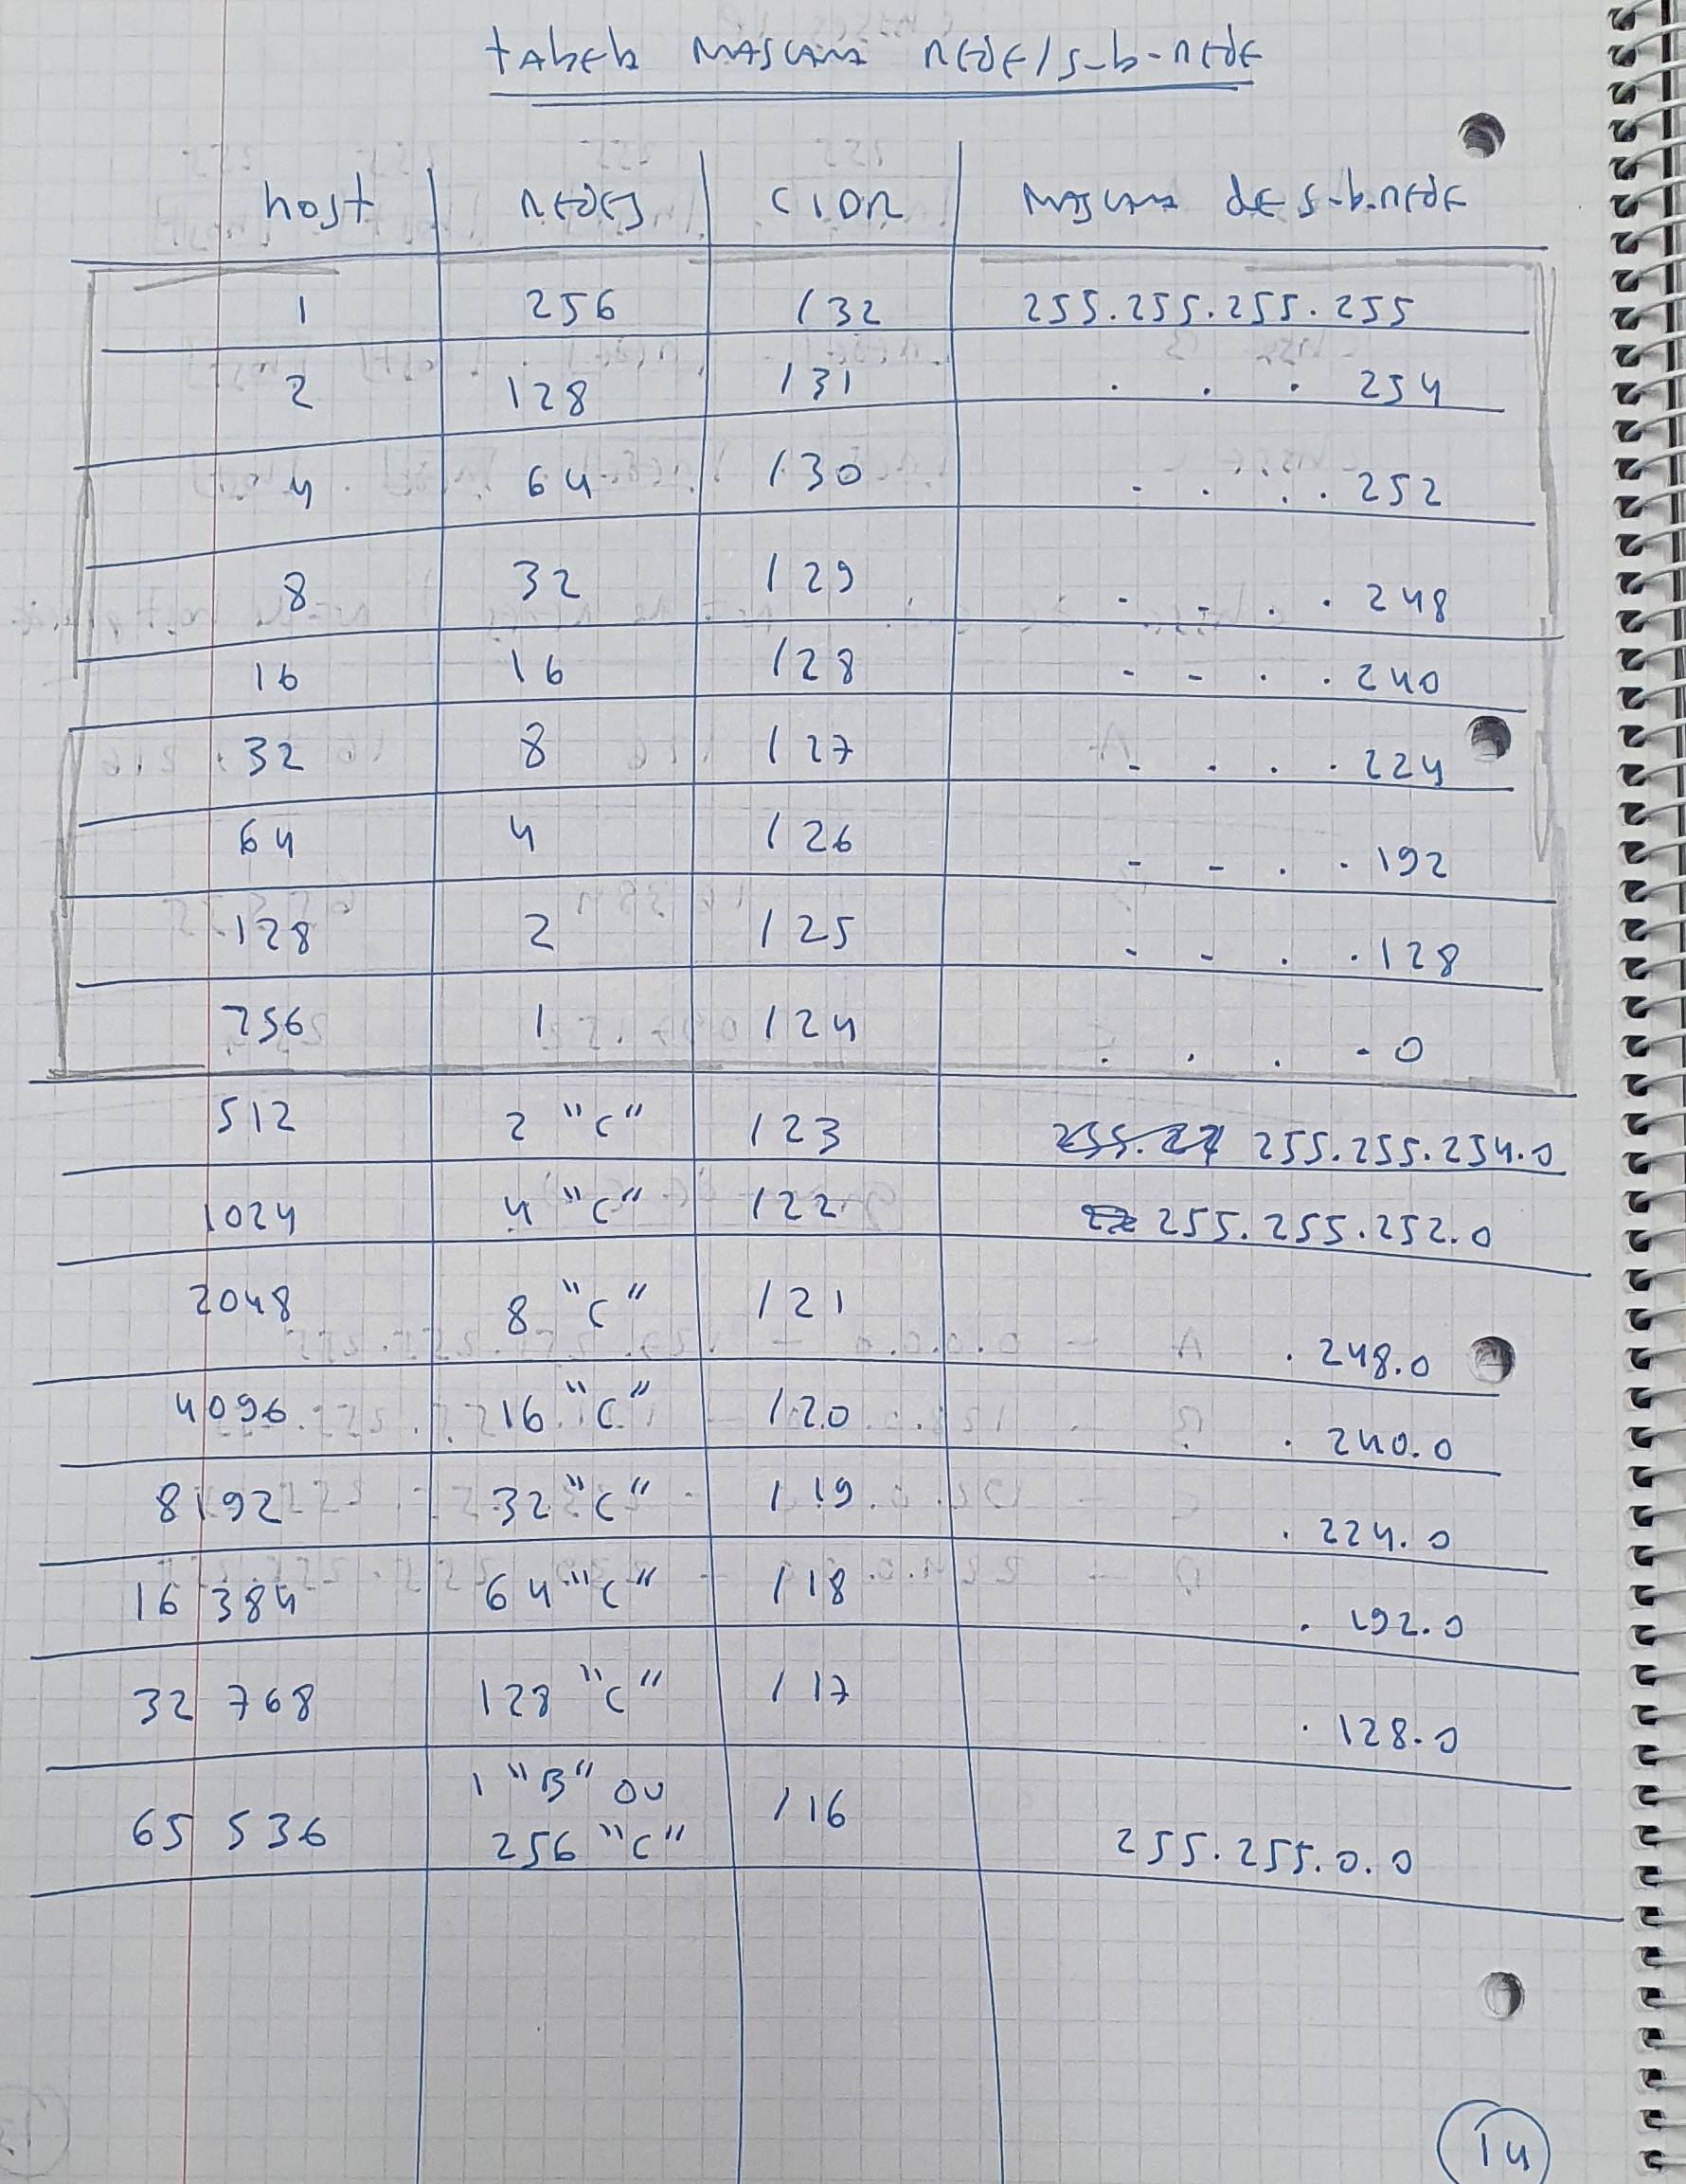 tabela mascara rede/sub-rede
host redes CIDR mascara de sub-rede
1 256 /32 255.255.255.255
2 128 /31 . . . 254
4 64 /30 . . . . 252
8 32 /29 . - . . 248
16 16 /28 - - . . 240
32 8 /27 - . . . 224
64 4 /26 - - . . 192
128 2 /25 - - . . 128
256 1 /24 . . . - 0
512 2 "C" /23 255.255.254.0
1024 4 "C" /22 255.255.252.0
2048 8 "C" /21 .248.0
4096 16 "C" /20 .240.0
8192 32 "C" /19 .224.0
16 384 64 "C" /18 .192.0
32 768 128 "C" /17 .128.0
65 536 1 "B" ou /16 255.255.0.0
256 "C"
14